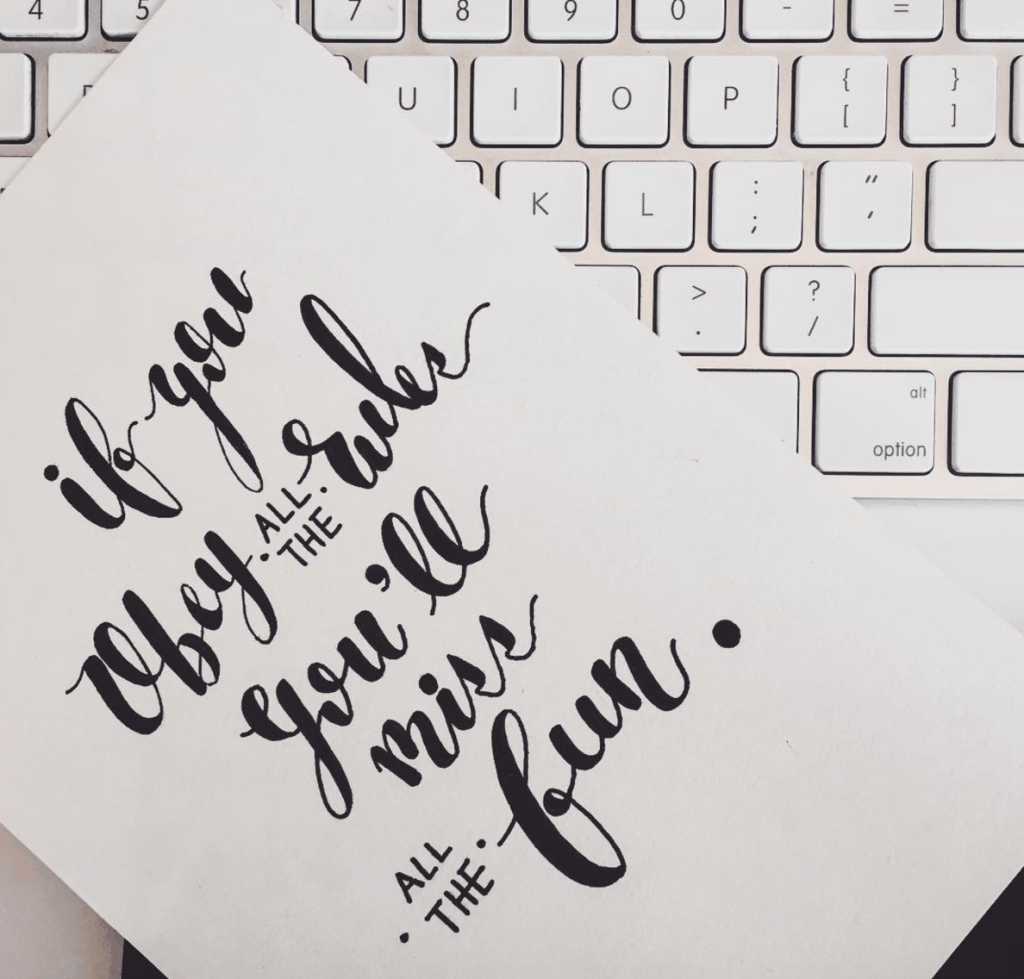 4 5 7 8 9 0 - =
U I O P { [ } ]
K L : ; " '
> . ? /
alt
option
if you
Obey ALL THE Rules
you'll
miss
ALL THE fun.